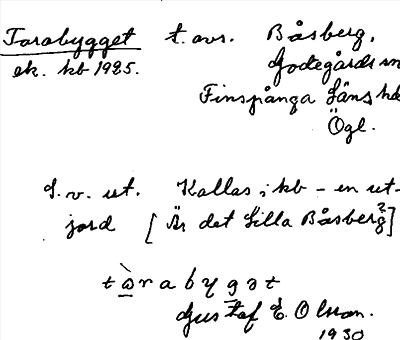 Tarabygget t. avs. Båsberg,
ek. kb 1925. Godegårds sn
Finspånga läns hd
Ögl.
S.v. ut. Kallas i kb – en ut-
jord [Är det Lilla Båsberg?]
tàrabygət
Gustaf E. Olsson.
1930